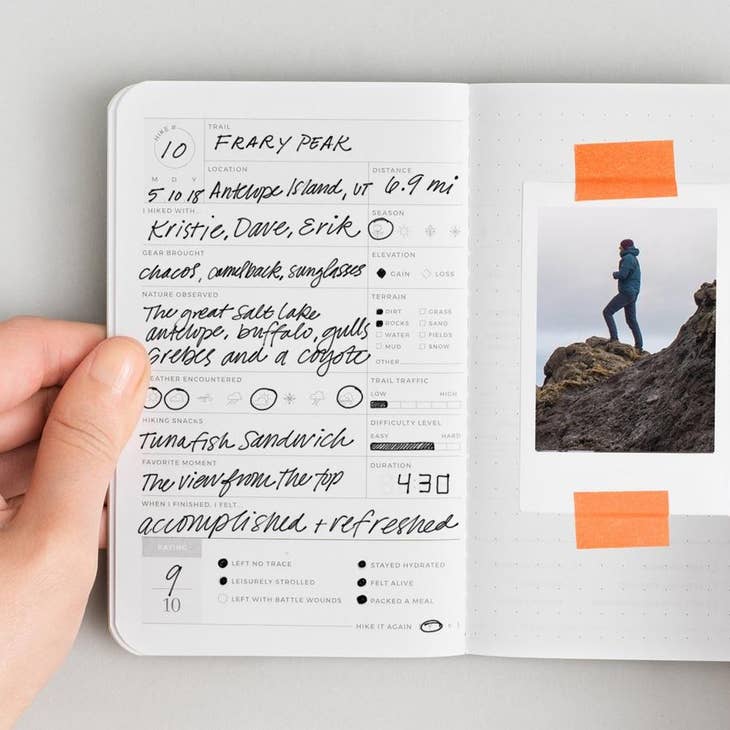 HIKE #
10
TRAIL
FRARY PEAK
M D Y
5 10 18
LOCATION
Antelope Island, UT
DISTANCE
6.9 mi
I HIKED WITH...
Kristie, Dave, Erik
SEASON
GEAR BROUGHT
chacos, camelback, sunglasses
ELEVATION
GAIN LOSS
NATURE OBSERVED
The great Salt Lake
antelope, buffalo, gulls
Grebes and a coyote
TERRAIN
DIRT GRASS
ROCKS SAND
WATER FIELDS
MUD SNOW
OTHER
WEATHER ENCOUNTERED
TRAIL TRAFFIC
LOW HIGH
HIKING SNACKS
Tunafish Sandwich
DIFFICULTY LEVEL
EASY HARD
FAVORITE MOMENT
The view from the top
DURATION
4 30
WHEN I FINISHED, I FELT...
accomplished + refreshed
RATING
9
10
LEFT NO TRACE
LEISURELY STROLLED
LEFT WITH BATTLE WOUNDS
STAYED HYDRATED
FELT ALIVE
PACKED A MEAL
HIKE IT AGAIN